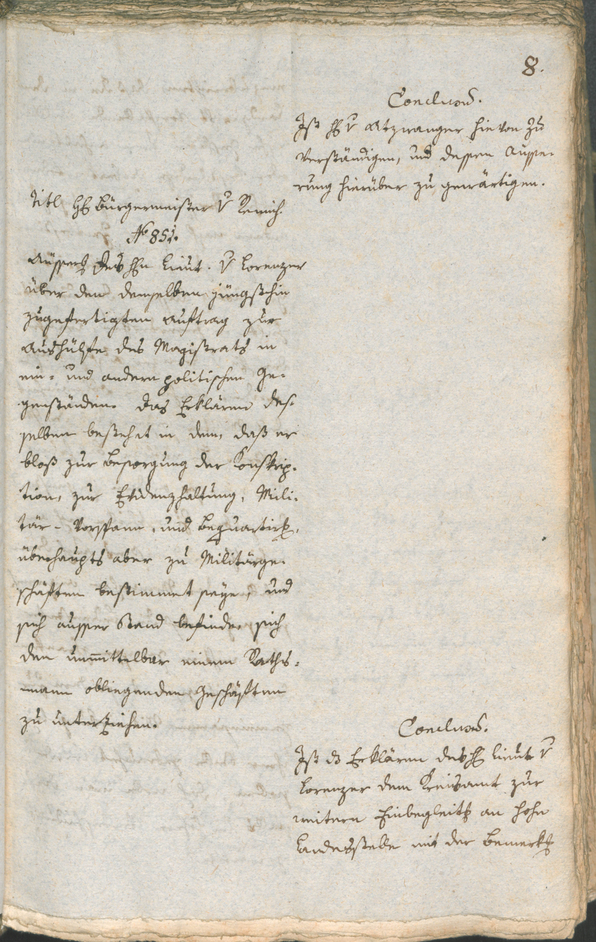 8.
Conclusũ.
Ist H v Atzwanger hievon zu
verständigen, und dessen Äusse-
rung hierüber zu gewärtigen.
Titl H Bürgermeister v
No 851.
Äusserg des Hn Lieut. v Lorenzer
über den demselben jüngsthin
zugefertigten Auftrag zur
Aushülfe des Magistrats in
ein- und andern politischen Ge-
genständen. Das Erklären des-
selben besteht in dem, daß er
bloß zur Besorgung der Konskrip-
tion, zur Evidenzhaltung, Mili-
tär-Vorspann, und Bequartierg,
überhaupts aber zu Militärge-
schäften bestimmet seye, und
sich ausser Stand befinde, sich
den unmittelbar einem Raths-
mann obliegenden Geschäften
zu unterziehen.
Conclusũ.
Ist das Erklären des H Lieut v
Lorenzer dem Kreisamt zur
weitern Einbegleitg an hohe
Landesstelle mit der Bemerkg